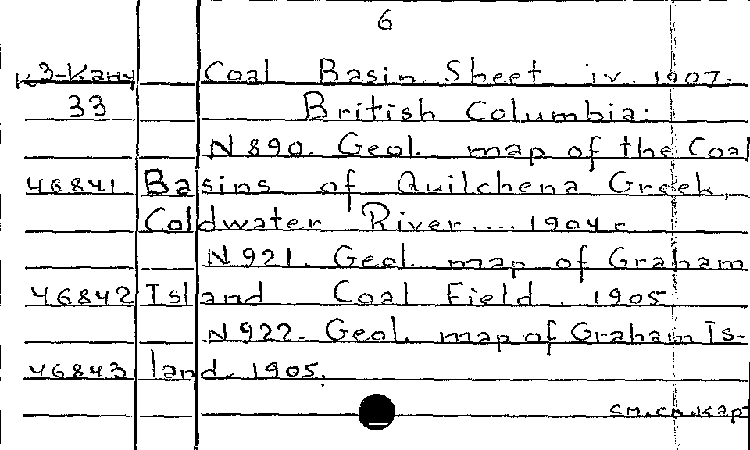 6
К3-Кану Coal Basin Sheet iv. 1907.
33 British Columbia:
N 890. Geol. map of the Coal
46841 Basins of Quilchena Greek,
Coldwater River.... 1904 г
N 921. Geol. map of Graham
46842 Island Coal Field. 1905
N 922. Geol. map of Graham Is-
46843 land. 1905.
см. сл. кар